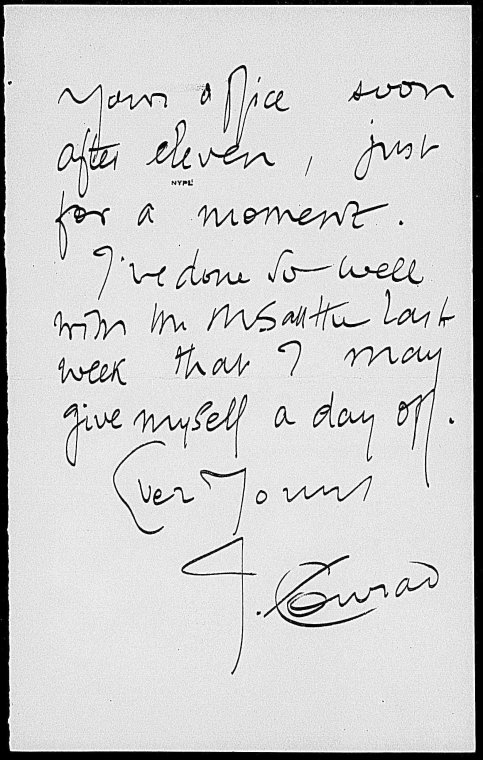 your office soon
after eleven, just
NYPL
for a moment.
I've done so well
with the MS all the last
week that I may
give myself a day off.
Ever Yours
J. Conrad